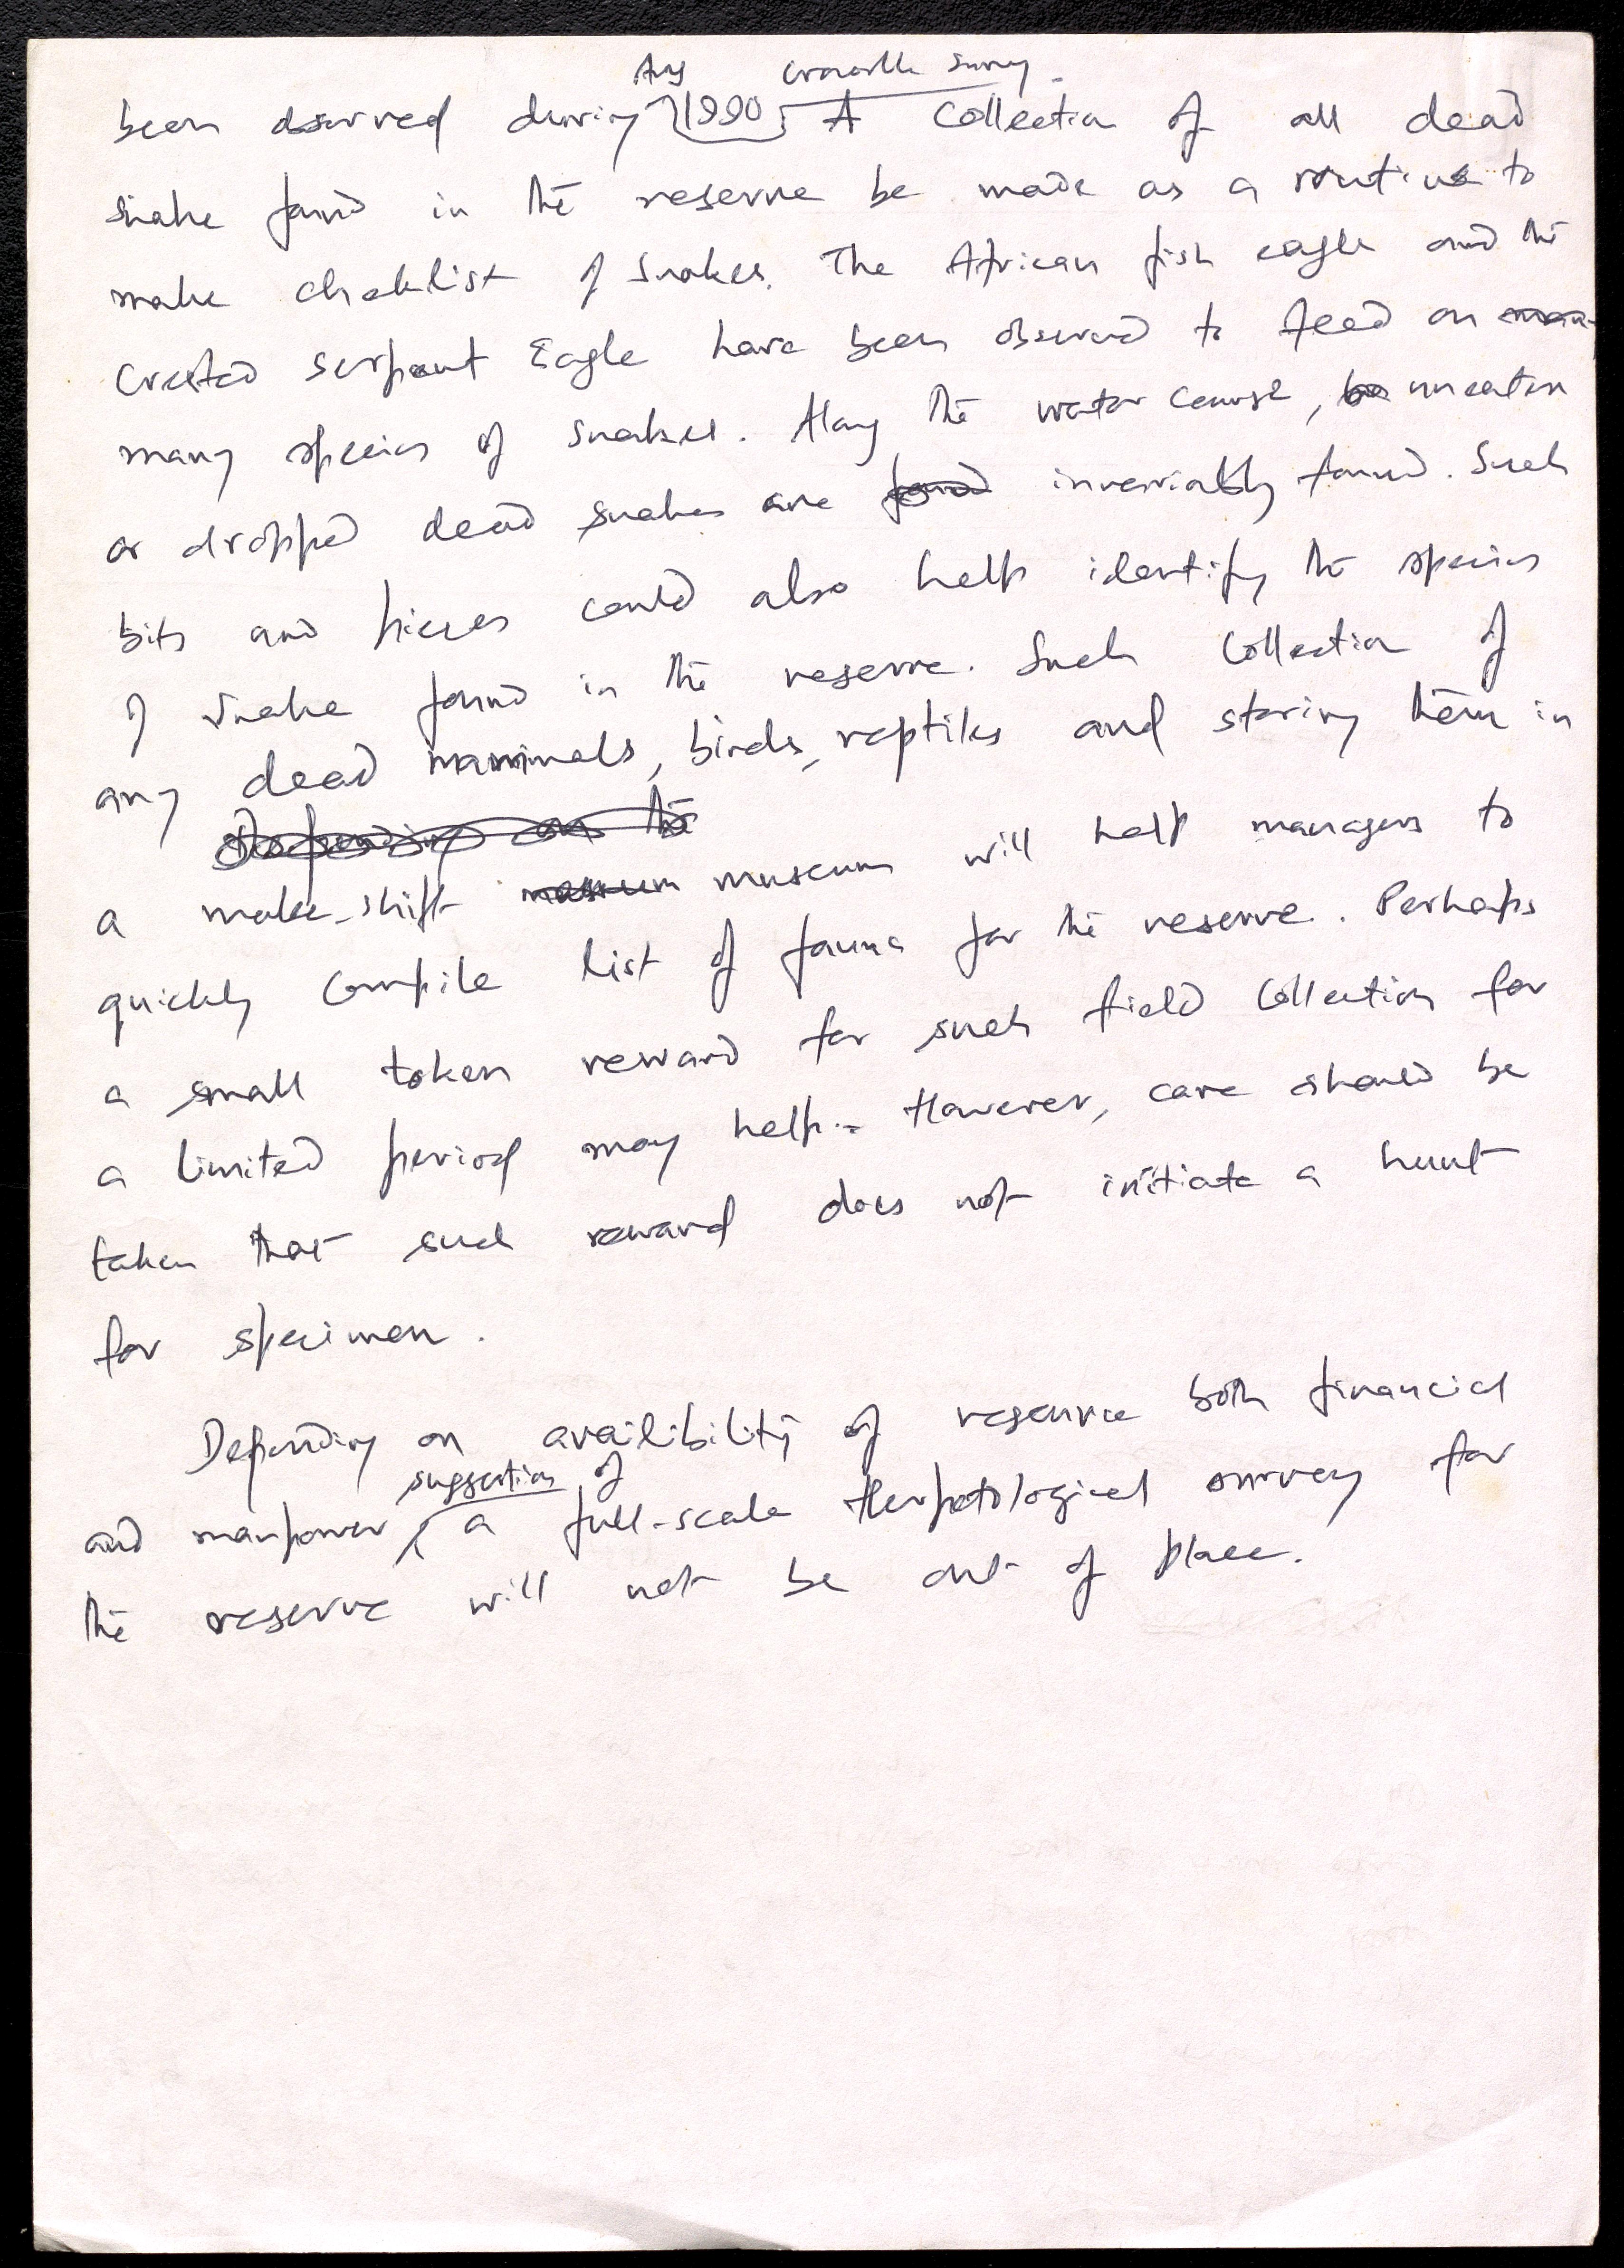 Aug crocodile survey.
been observed during 1990 A collection of all dead
snake found in the reserve be made as a routine to
make checklist of snakes. The African fish eagle and the
Crested serpent Eagle have been observed to feed on
many species of snakes. Along the water course, uneaten
or dropped dead snakes are found invariably found. Such
bits and pieces could also help identify the species
of snake found in the reserve. Such collection of
any dead mammals, birds, reptiles and storing them in
Depending on the
a make-shift museum will help managers to
quickly compile list of fauna for the reserve. Perhaps
a small token reward for such field collection for
a limited period may help. However, care should be
taken that such reward does not initiate a hunt
for specimen.
Depending on availibility of resource both financial
suggestion of
and manpower, a full-scale Herpetological survey for
the reserve will not be out of place.